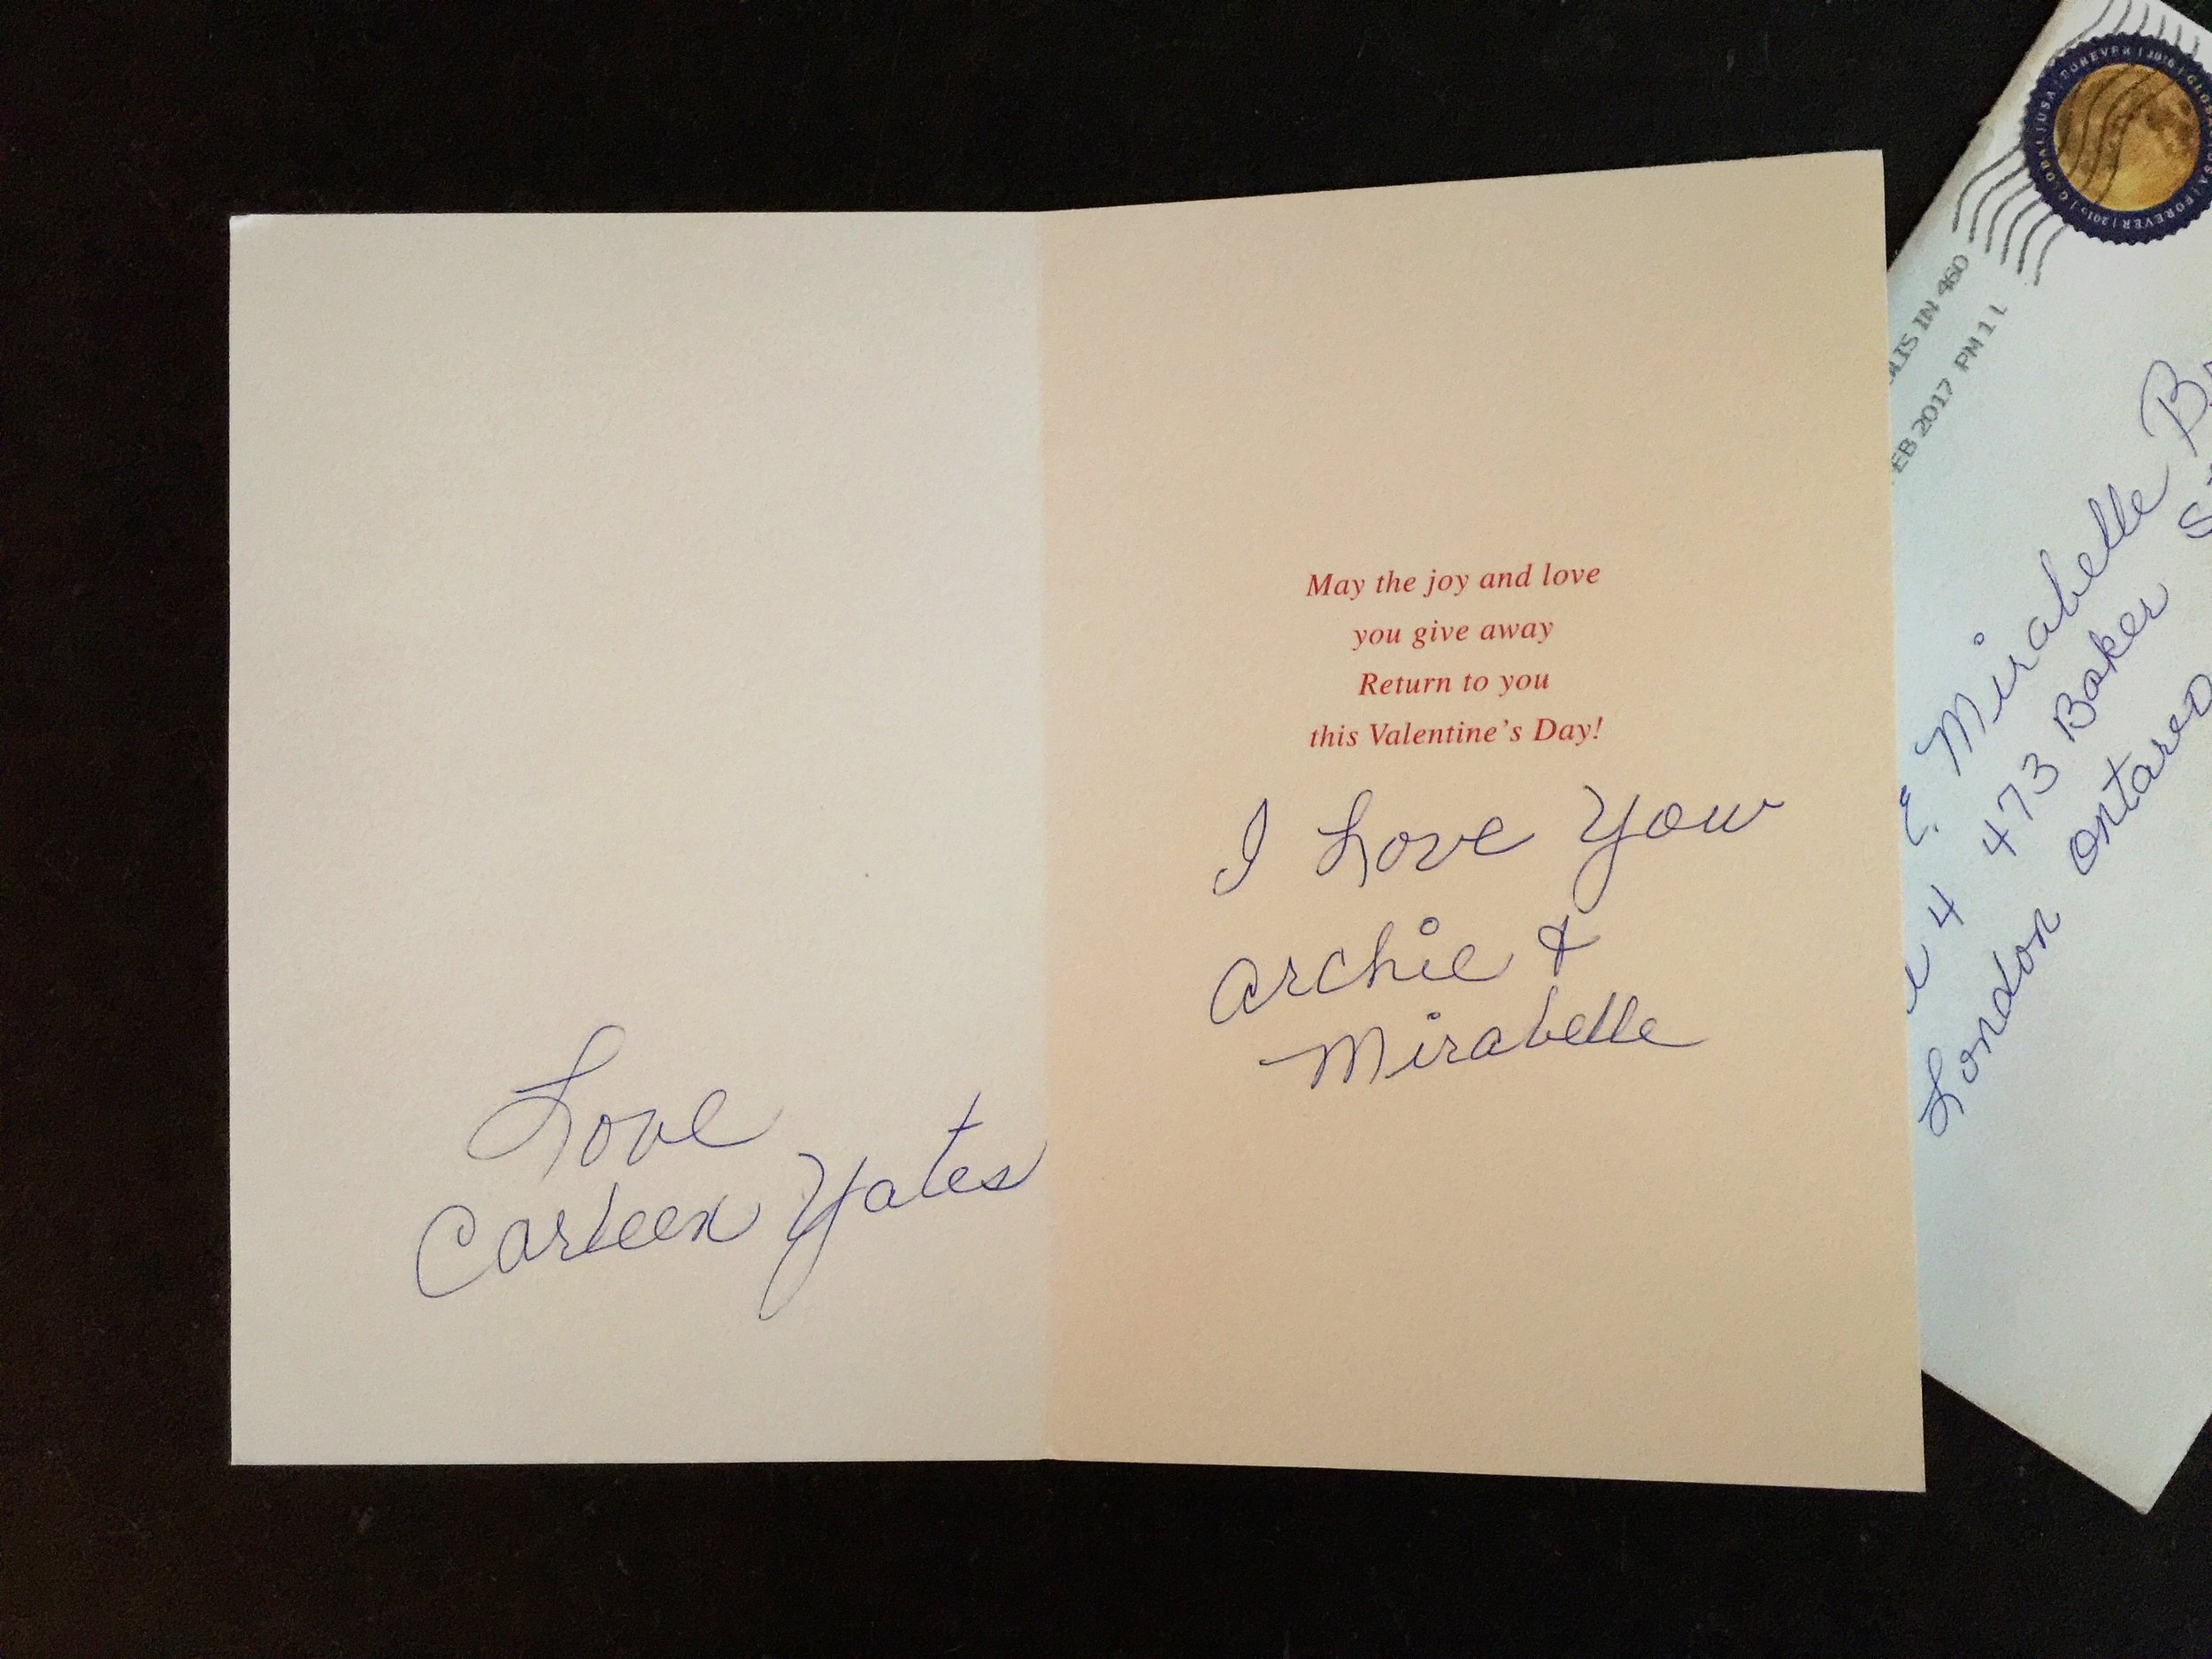 Love
Carleen Yates
May the joy and love
you give away
Return to you
this Valentine's Day!
I Love You
Archie &
Mirabelle
GLOBAL | USA | FOREVER | 2016
USA | FOREVER | 2016
IN 460
2017 PM 1 L
E. Mirabelle
4 473 Baker
London Ontareo